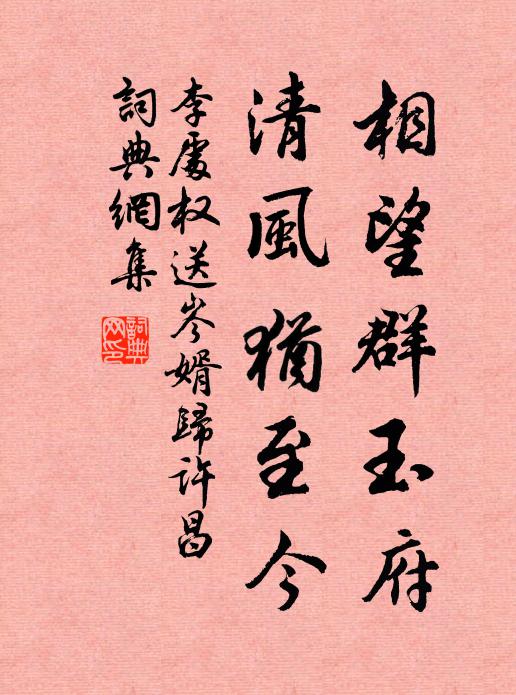 相望群玉府
清風猶至今
李處权送岑婿歸許昌
詞典網集
詞典網印